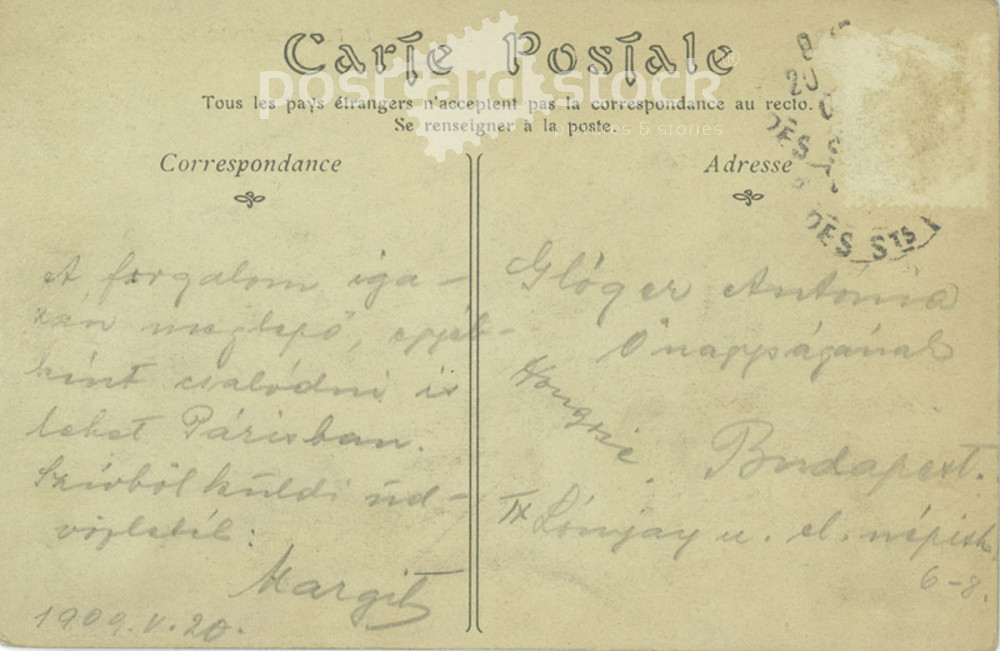 Carte Postale
postcard stock
®
Tous les pays étrangers n'acceptent pas la correspondance au recto.
Se renseigner à la poste.
& stories
Correspondance
Adresse
DES STS
A forgalom iga-
zán meglepő, egyéb-
ként csalódni is
lehet Párisban.
Szívből küldi üd-
vözletét:
Margit
1909. V. 20.
Glóger Antónia
Őnagyságának
Hongrie.
Budapest.
IX Lónyay u. el. népisk
6-8.